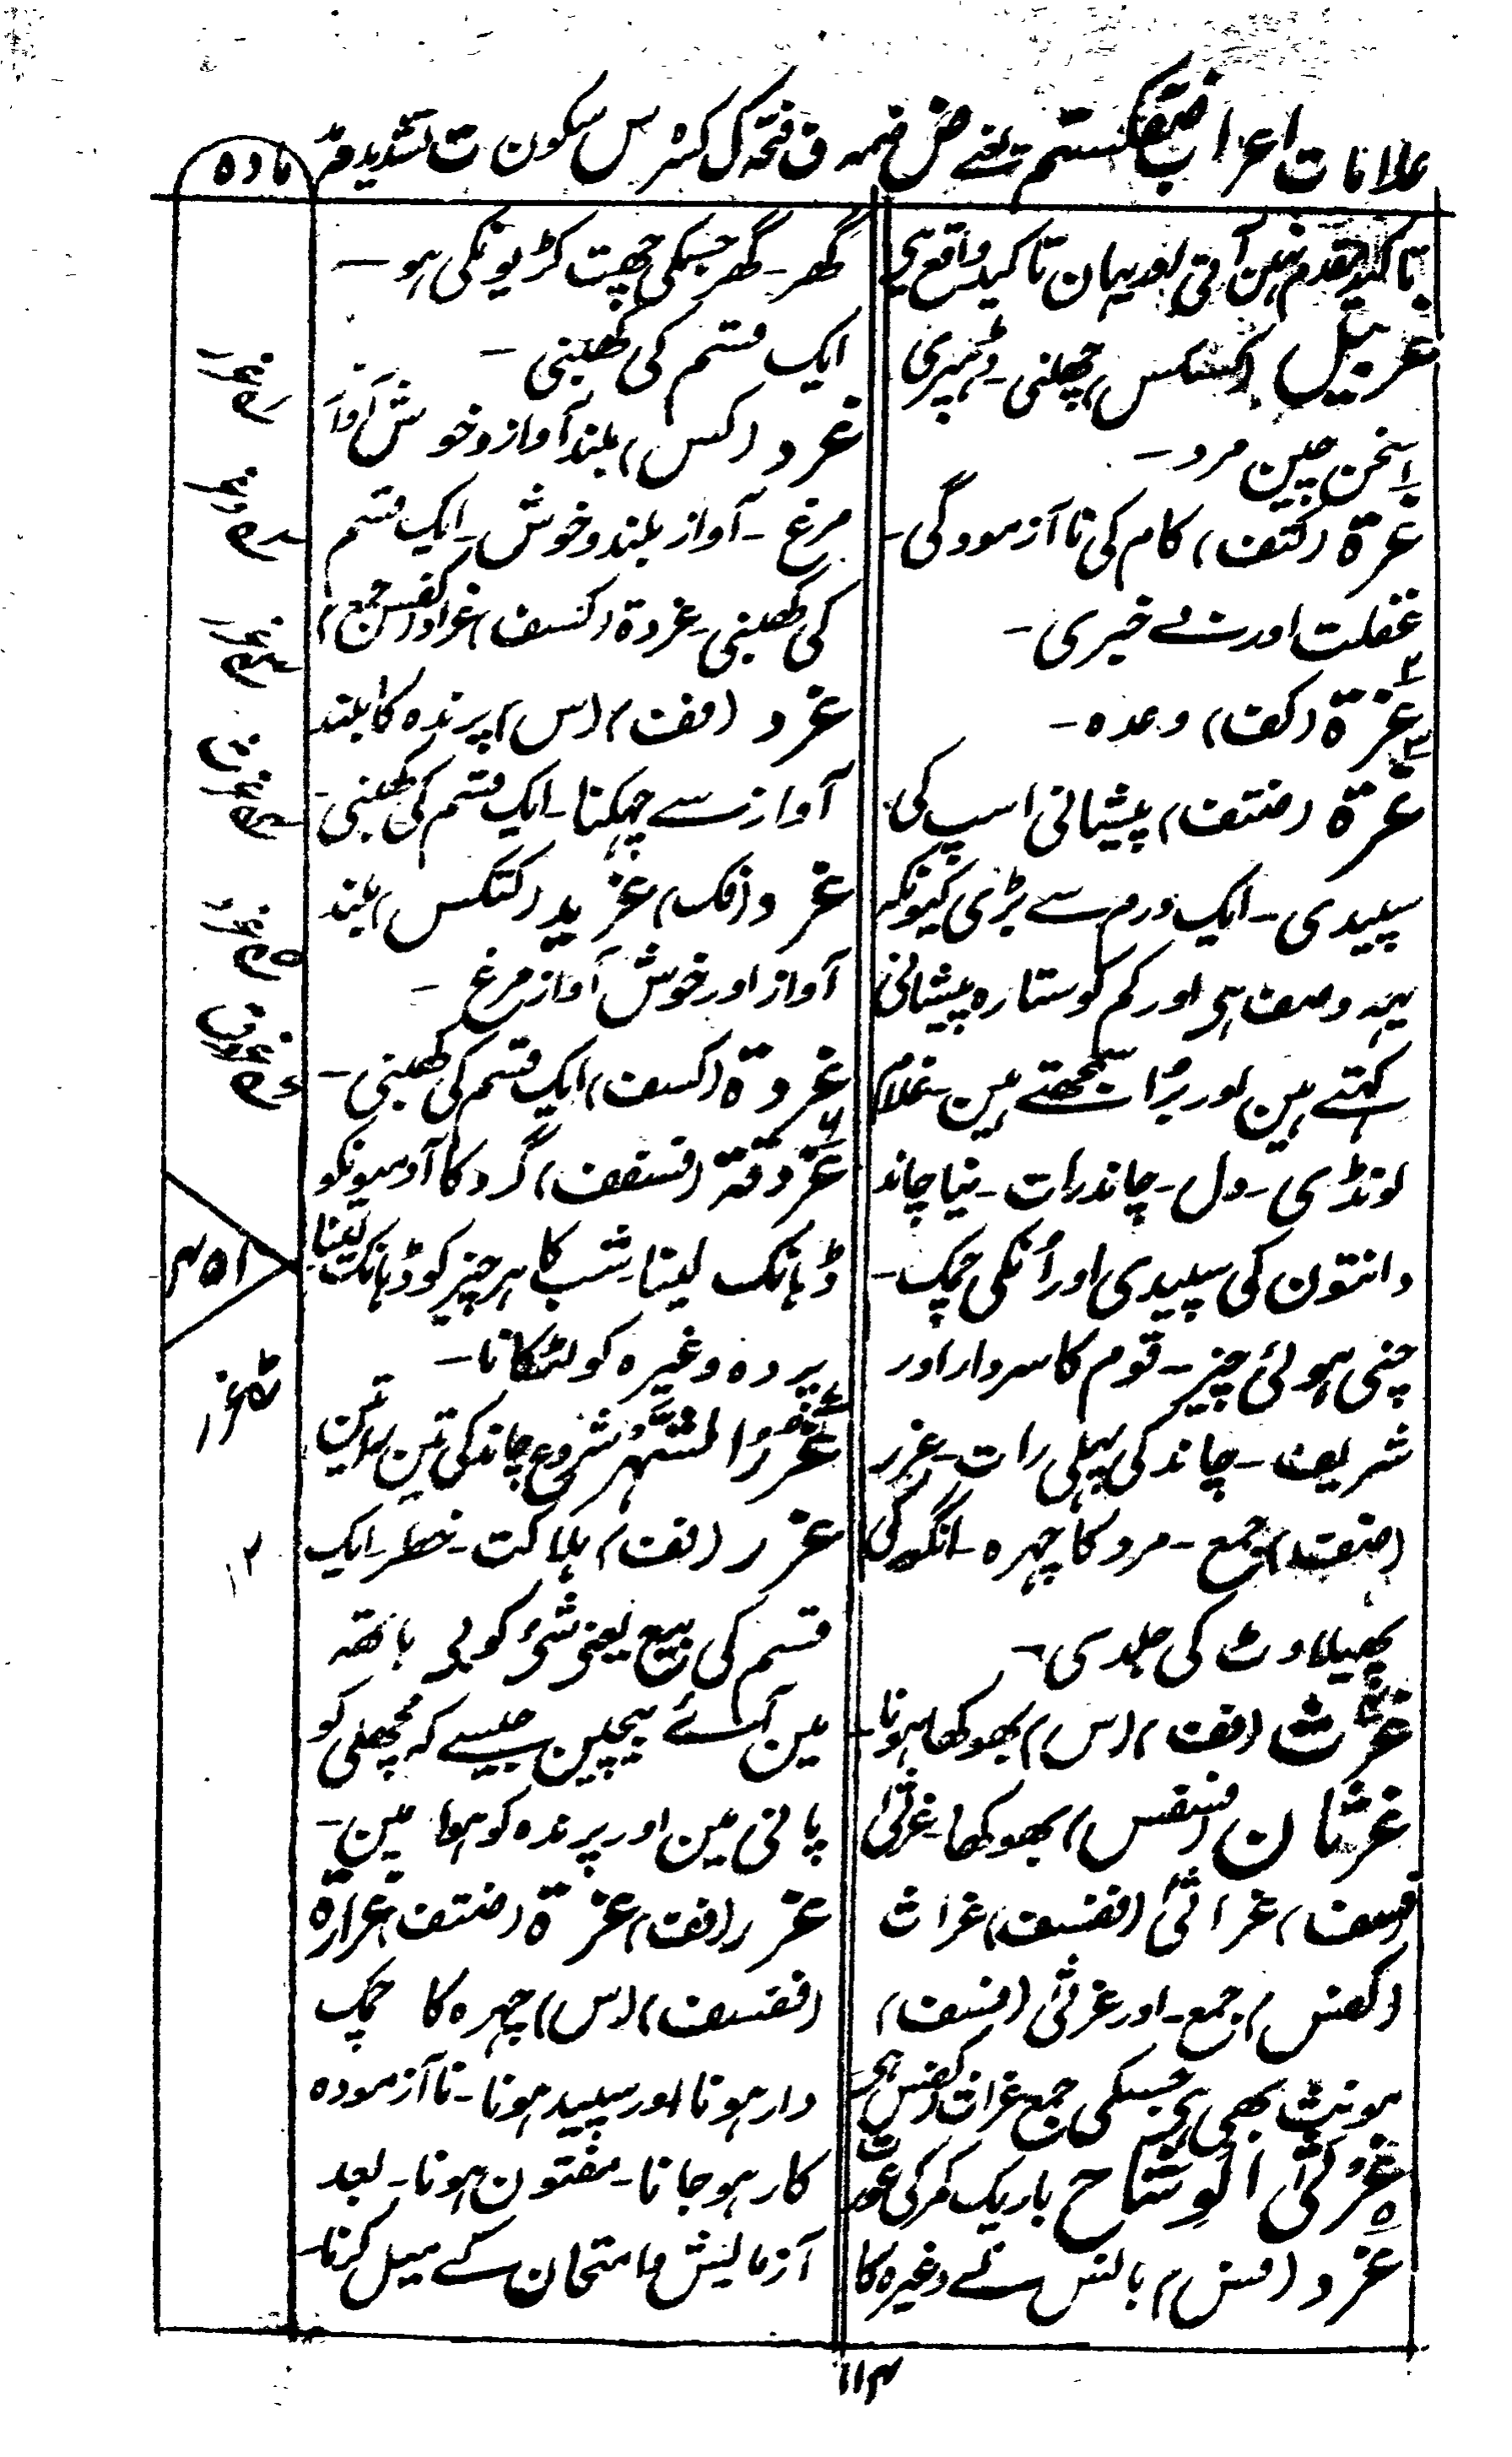 علامات اعراب ضفکستم یعنے ض ضمہ ف فتحہ ک کسرہ س سکون ت تشدید م مد
مادہ
تاکید مقدم نہین آتی اور یہان تاکید واقع ہی
غربیل (کسکس) چھلنی۔
سخن چین مرد۔
غرۃ (کتف) کام کی نا آزمودگی۔
غفلت اور بے خبری۔
غرۃ (کف) وعدہ۔
غرۃ (ضتف) پیشانی اسپ کی
سپیدی۔ ایک درم سے بڑی کیونکہ
یہہ وصف ہی اور کم کو ستارہ پیشانی
کہتے ہین اور بُرا سمجھتے ہین۔ غلام
لونڈی۔ دل۔ چاند رات۔ نیا چاند
دانتون کی سپیدی اور اُنکی چمک۔
چنی ہوئی چیز۔ قوم کا سردار اور
شریف۔ چاند کی پہلی رات۔ غرر
(ضفت) جمع۔ مرد کا چہرہ۔ انگور کی
پھیلاوٹ کی جلدی۔
غرث (فف) (س) بھوکھا ہونا۔
غرثان (فسفس) بھوکھا۔ غرثیٰ
(فسف) غراثیٰ (ففسف) غراث
(کفس) جمع۔ اور غرثیٰ (فسف)
مونث بھی ہی جسکی جمع غراث (کفس) ہی۔
غَرْثَی الْوِشَاح باریک کمر کی عورت
غرد (فس) بانس نے وغیرہ کا
گھر۔ گھر جسکی چھت کڑیونکی ہو۔
ایک قسم کی کھبنی۔
غرد (کس) بلند آواز و خوش آواز
مرغ۔ آواز بلند و خوش۔ ایک قسم
کی کھبنی۔ غردۃ (کسف) غراد (کفس) جمع
غرد (فف) (س) پرندہ کا بلند
آواز سے چہکنا۔ ایک قسم کی کھبنی۔
غرد (فک) غرید (کتکس) بلند
آواز اور خوش آواز مرغ۔
غردۃ (کسف) ایک قسم کی کھبنی۔
غردقۃ (فسفف) گرد کا آدمیونکو
ڈہانک لینا۔ شب کا ہر چیز کو ڈہانک لینا
پردہ وغیرہ کو لٹکانا۔
غُرَرُ الشَّہْر شروع چاند کی تین راتین
غرر (فف) ہلاکت۔ خطر۔ ایک
قسم کی بیع یعنی شئ کو بی ہاتھہ
مین آئے بیچین جیسے کہ مچھلی کو
پانی مین اور پرندہ کو ہوا مین۔
غرر (فف) غرۃ (ضتف) غرارۃ
(ففسف) (س) چہرہ کا چمک
دار ہونا اور سپید ہونا۔ نا آزمودہ
کار ہوجانا۔ مفتون ہونا۔ بعد
آزمایش و امتحان کے میل کرنا۔